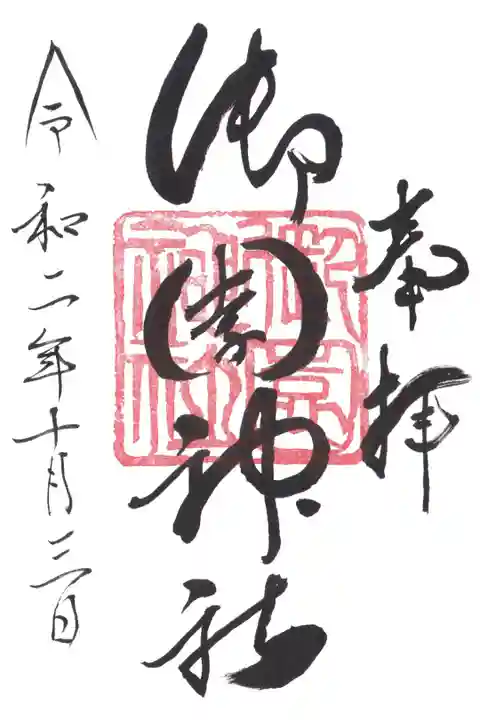 奉拝
御園神社
令和二年十月三日